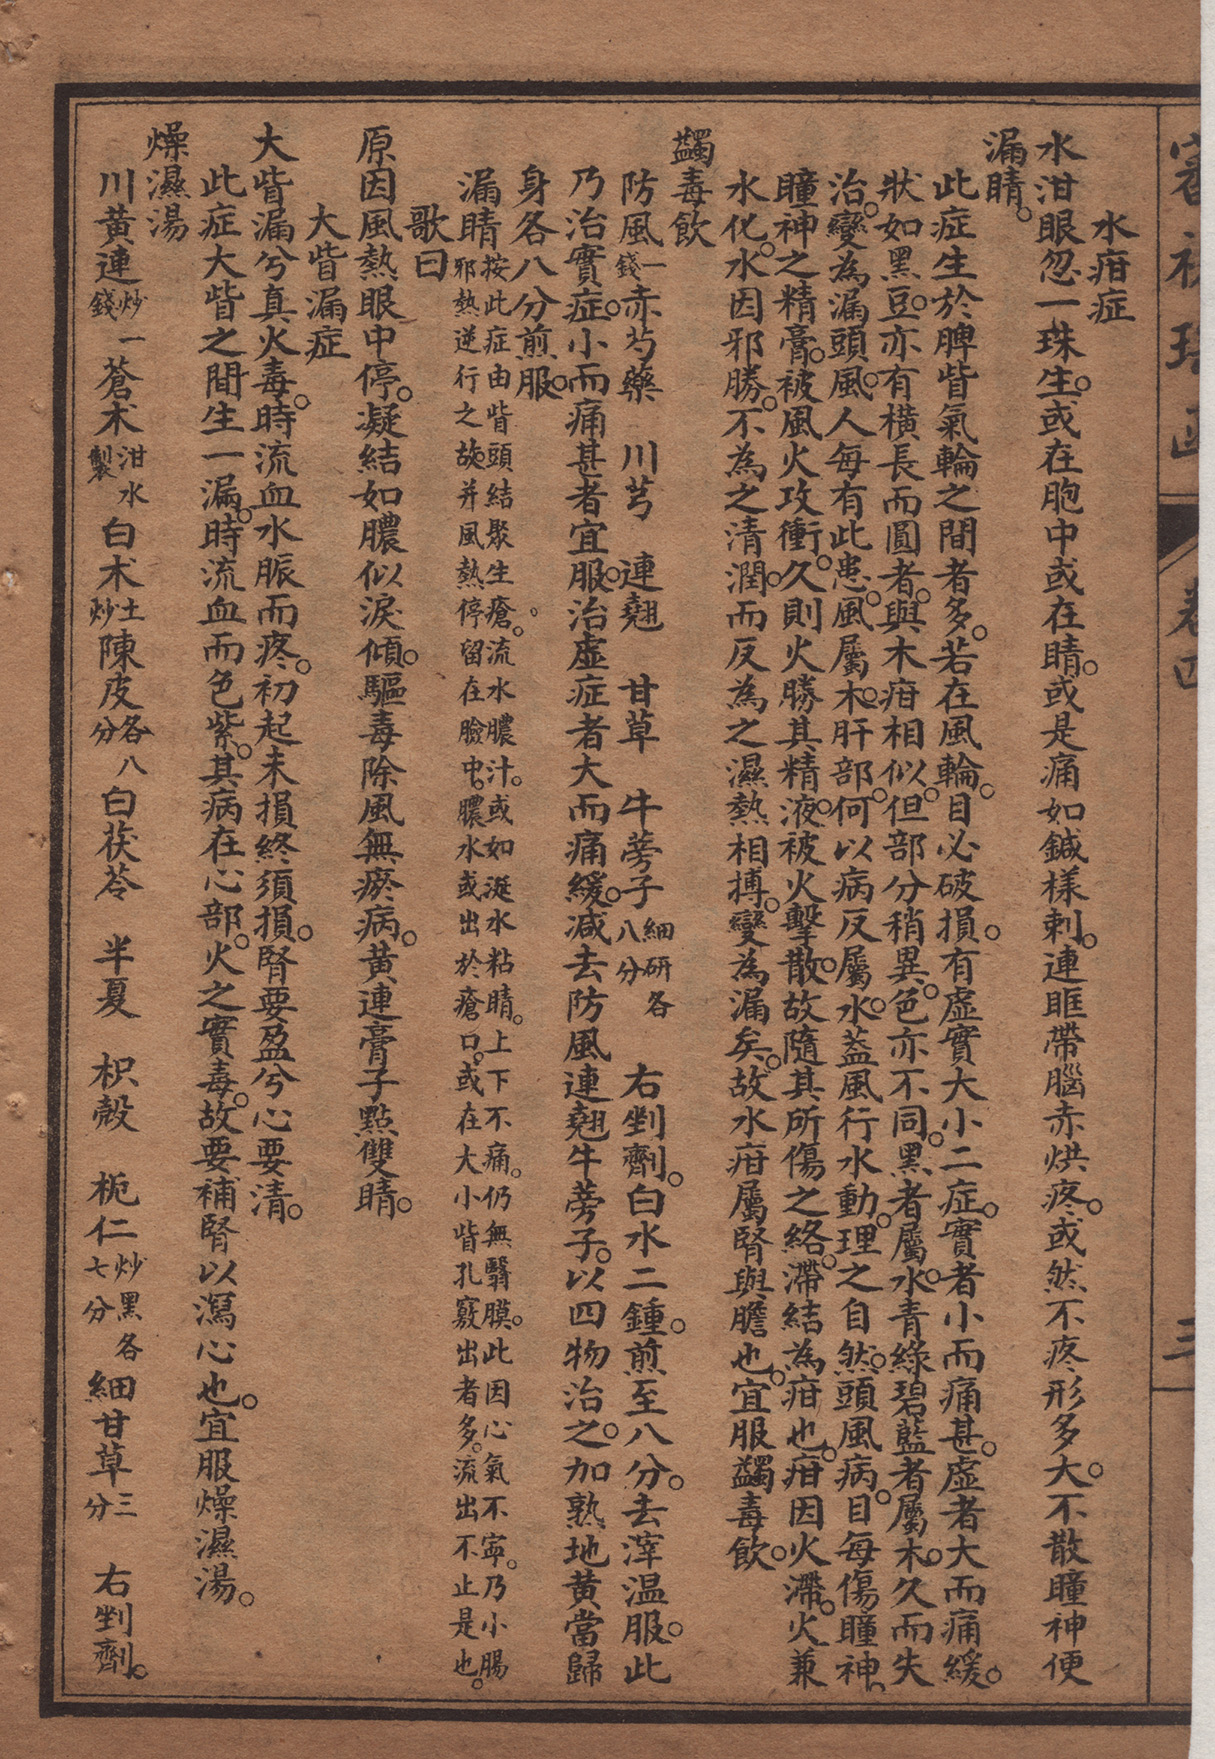 審視瑤函 卷四 三
水疳症
水泔眼忽一珠生。或在胞中或在睛。或是痛如鍼樣刺。連眶帶腦赤烘疼。或然不疼形多大。不散瞳神便
漏睛。
此症生於脾眥氣輪之間者多。若在風輪。目必破損。有虛實大小二症。實者小而痛甚。虛者大而痛緩。
狀如黑豆。亦有橫長而圓者。與木疳相似。但部分稍異。色亦不同。黑者屬水。青綠碧藍者屬木。久而失
治。變為漏頭風。人每有此患。風屬木。肝部。何以病反屬水。蓋風行水動。理之自然。頭風病。目每傷瞳神。
瞳神之精膏。被風火攻衝。久則火勝其精液。被火擊散。故隨其所傷之絡。滯結為疳也。疳因火滯。火兼
水化。水因邪勝。不為之清潤。而反為之濕熱相搏。變為漏矣。故水疳屬腎與膽也。宜服蠲毒飲。
蠲毒飲
防風一錢 赤芍藥 川芎 連翹 甘草 牛蒡子細研各八分 右剉劑。白水二鍾。煎至八分。去滓溫服。此
乃治實症。小而痛甚者宜服。治虛症者大而痛緩。減去防風連翹牛蒡子。以四物治之。加熟地黃當歸
身各八分煎服。
漏睛按此症由眥頭結聚生瘡。流水膿汁。或如涎水粘睛。上下不痛。仍無翳膜。此因心氣不寧。乃小腸邪熱逆行之故。并風熱停留在臉中。膿水或出於瘡口。或在大小眥孔竅出者多。流出不止是也。
歌曰
原因風熱眼中停。凝結如膿似淚傾。驅毒除風無瘀病。黃連膏子點雙睛。
大眥漏症
大眥漏兮真火毒。時流血水脤而疼。初起未損終須損。腎要盈兮心要清。
此症大眥之間生一漏。時流血而色紫。其病在心部。火之實毒。故要補腎以瀉心也。宜服燥濕湯。
燥濕湯
川黃連炒一錢 蒼术泔水製 白术土炒 陳皮各八分 白茯苓 半夏 枳殼 梔仁炒黑各七分 細甘草三分 右剉劑。